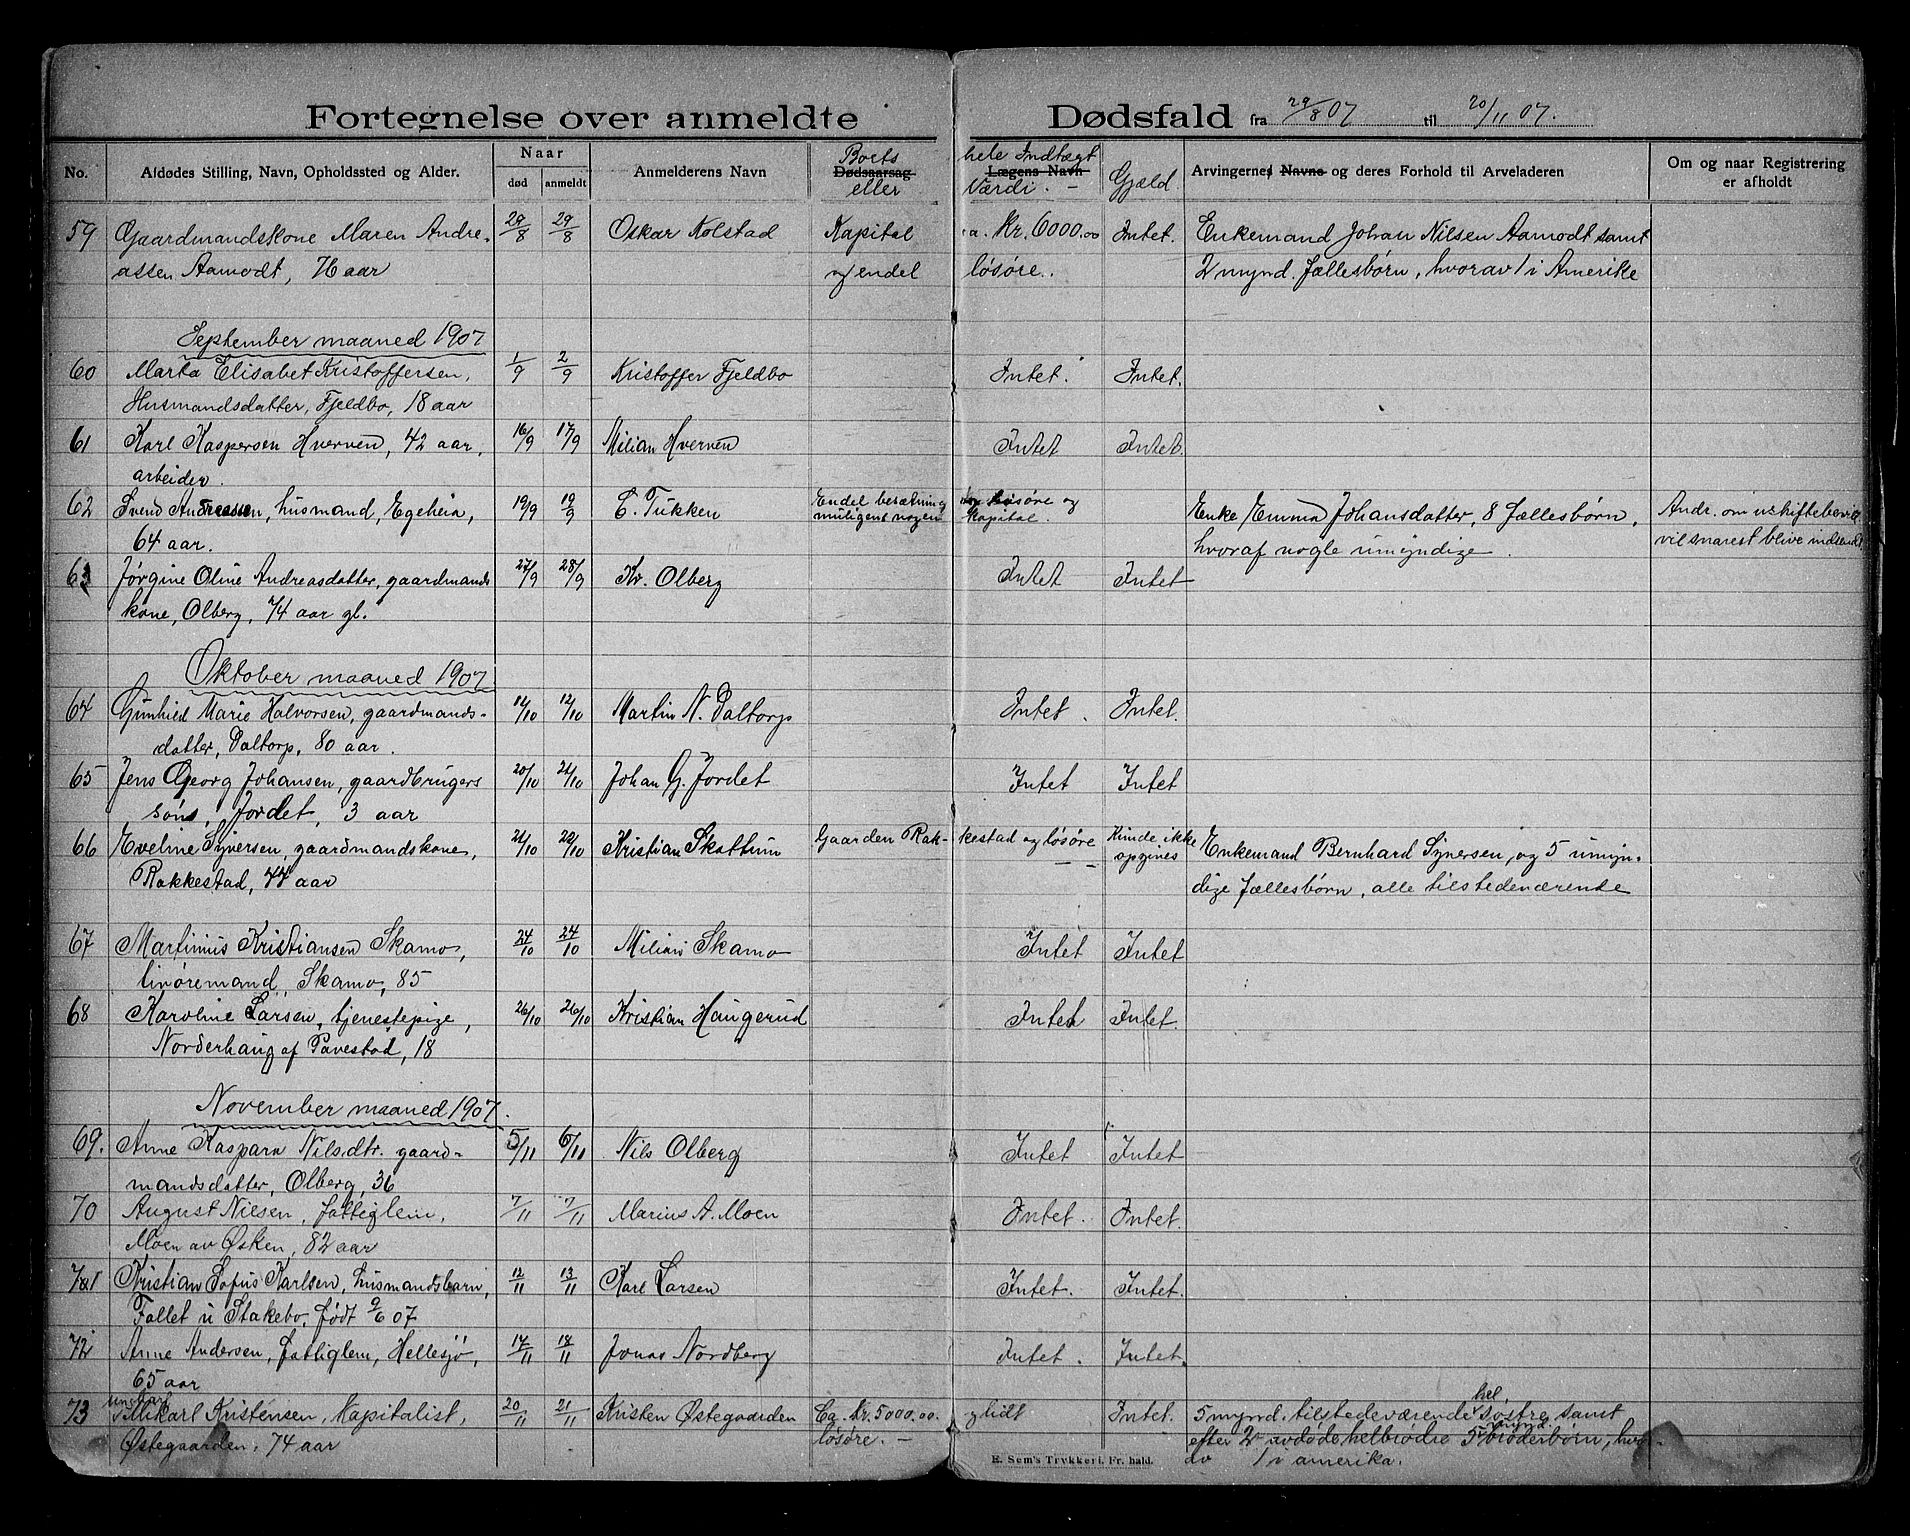 Fortegnelse over anmeldte Dødsfald fra 29/8 07 til 20/11 07.
No. Afdødes Stilling, Navn, Opholdssted og Alder. Naar død anmeldt Anmelderens Navn Boets Dødsaarsag eller hele Indtægt Lægens Navn Værdi. – Gjæld. Arvingernes Navne og deres Forhold til Arveladeren Om og naar Registrering er afholdt
59 Gaardmandskone Maren Andre- 28/8 29/8 Oskar Kolstad Kapital ca. Kr. 6000.00 Intet. Enkemand Johan Nilsen Aamodt samt
assen Aamodt, 76 aar og endel løsøre. 2 mynd. fællesbørn, hvorav 1 i Amerike
September maaned 1907
60 Marta Elisabet Kristoffersen, 1/9 2/9 Kristoffer Fjeldbo Intet. Intet.
Husmandsdatter, Fjeldbo, 18 aar
61 Karl Kaspersen Hverven, 42 aar, 16/9 17/9 Milian Hverven Intet Intet.
arbeider.
62 Svend Andressen, husmand, Egeheia, 19/9 19/9 C. Tukken Endel besætning løsøre og Enke Emma Johansdatter, 8 fællesbørn, Andr. om uskiftebev.
64 aar. muligens nogen kapital. hvoraf nogle umyndige. vil snarest blive indsendt
63 Jørgine Oline Andreasdatter, gaardmands 27/9 28/9 Kr. Olberg Intet Intet
kone, Olberg, 74 aar gl.
Oktober maaned 1907
64 Gunhild Marie Halvorsen, gaardmands- 12/10 12/10 Martin N. Daltorp Intet. Intet.
datter, Daltorp, 80 aar.
65 Jens Georg Johansen, gaardbrugers 20/10 21/10 Johan G. Jordet Intet Intet
søn, Jordet, 3 aar
66 Eveline Syversen, gaardmandskone, 21/10 22/10 Kristian Skattum Gaarden Rak- kestad og løsøre Kunde ikke opgives Enkemand Bernhard Syversen, og 5 umyn-
Rakkestad, 44 aar dige fællesbørn, alle tilstedeværende
67 Martinius Kristiansen Skamo, 24/10 24/10 Milian Skamo Intet Intet
livøremand, Skamo, 85
68 Karoline Larsen, tjenestepige, 26/10 26/10 Kristian Haugerud Intet Intet.
Norderhaug af Pavestad, 18
November maaned 1907.
69. Anne Kaspara Nilsdtr. gaard- 5/11 6/11 Nils Olberg Intet Intet
mandsdatter, Olberg, 36
70 August Nilsen, fattiglem, 7/11 7/11 Marius A. Moen Intet. Intet.
Moen av Øsken, 82 aar
71 Kristian Sofus Karlsen, husmandsbarn, 12/11 13/11 Karl Larsen Intet. Intet.
Fallet u Stakebo, født 9/6 07
72 Anne Andersen, fattiglem, Hellesjø, 17/11 18/11 Jonas Nordberg Intet. Intet.
65 aar
73 ungkarl Mikarl Kristensen, Kapitalist, 20/11 21/11 Kristen Østegaarden Ca. Kr. 5000.00 og lidt Intet. 5 mynd. tilstedeværende hel søstre samt
Østegaarden, 74 aar løsøre. – efter 2 avdøde helbrødre 5 mynd. brøderbørn, hvo-
E. Sem's Trykkeri, Fr. hald. av 1 i amerika.